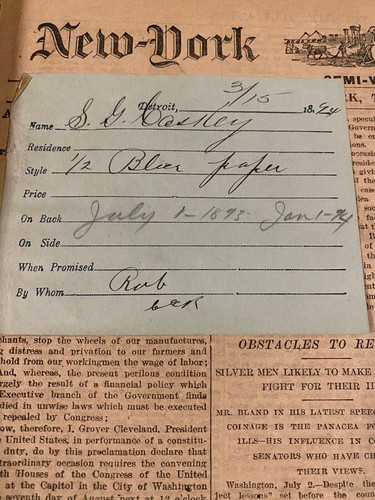 New-York
SEMI-W
K, T
Detroit, 3/15 1894
Name S. G. Caskey
Residence
Style 1/2 Blue paper
Price
On Back July 1-1893- Jan 1-94
On Side
When Promised
By Whom Rob
chants, stop the wheels of our manufactures,
g distress and privation to our farmers and
hold from our workingmen the wage of labor;
And, whereas, the present perilous condition
rgely the result of a financial policy which
Executive branch of the Government finds
died in unwise laws which must be executed
repealed by Congress;
ow, therefore, I, Grover Cleveland, President
United States, in performance of a constitu-
duty, do by this proclamation declare that
traordinary occasion requires the convening
th Houses of the Congress of the United
at the Capitol in the City of Washington
seventh day of August next at 12 o'clock
OBSTACLES TO RE
SILVER MEN LIKELY TO MAKE
FIGHT FOR THEIR I
MR. BLAND IN HIS LATEST SPEEC
COINAGE IS THE PANACEA FO
ILLS—HIS INFLUENCE IN CO
SENATORS WHO HAVE CH
THEIR VIEWS.
Washington, July 2.—Despite the
ject lessons" set before the count